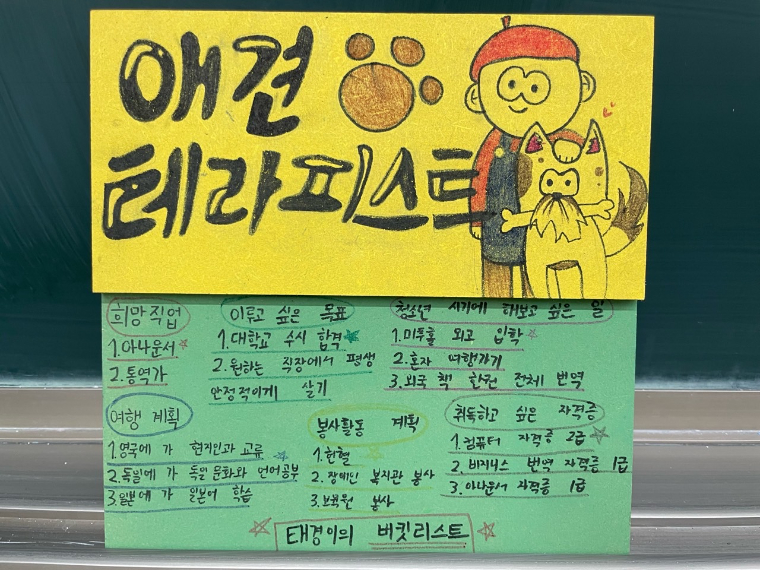 애견
테라피스트
희망직업
1. 아나운서
2. 통역가
이루고 싶은 목표
1. 대학교 수시 합격
2. 원하는 직장에서 평생
안정적이게 살기
청소년 시기에 해보고 싶은 일
1. 미추홀 외고 입학
2. 혼자 여행가기
3. 외국 책 한권 전체 번역
여행 계획
1. 영국에 가 현지인과 교류
2. 독일에 가 독일 문화와 언어공부
3. 일본에 가 일본어 학습
봉사활동 계획
1. 헌혈
2. 장애인 복지관 봉사
3. 보육원 봉사
취득하고 싶은 자격증
1. 컴퓨터 자격증 2급
2. 비지니스 번역 자격증 1급
3. 아나운서 자격증 1급
태경이의 버킷리스트